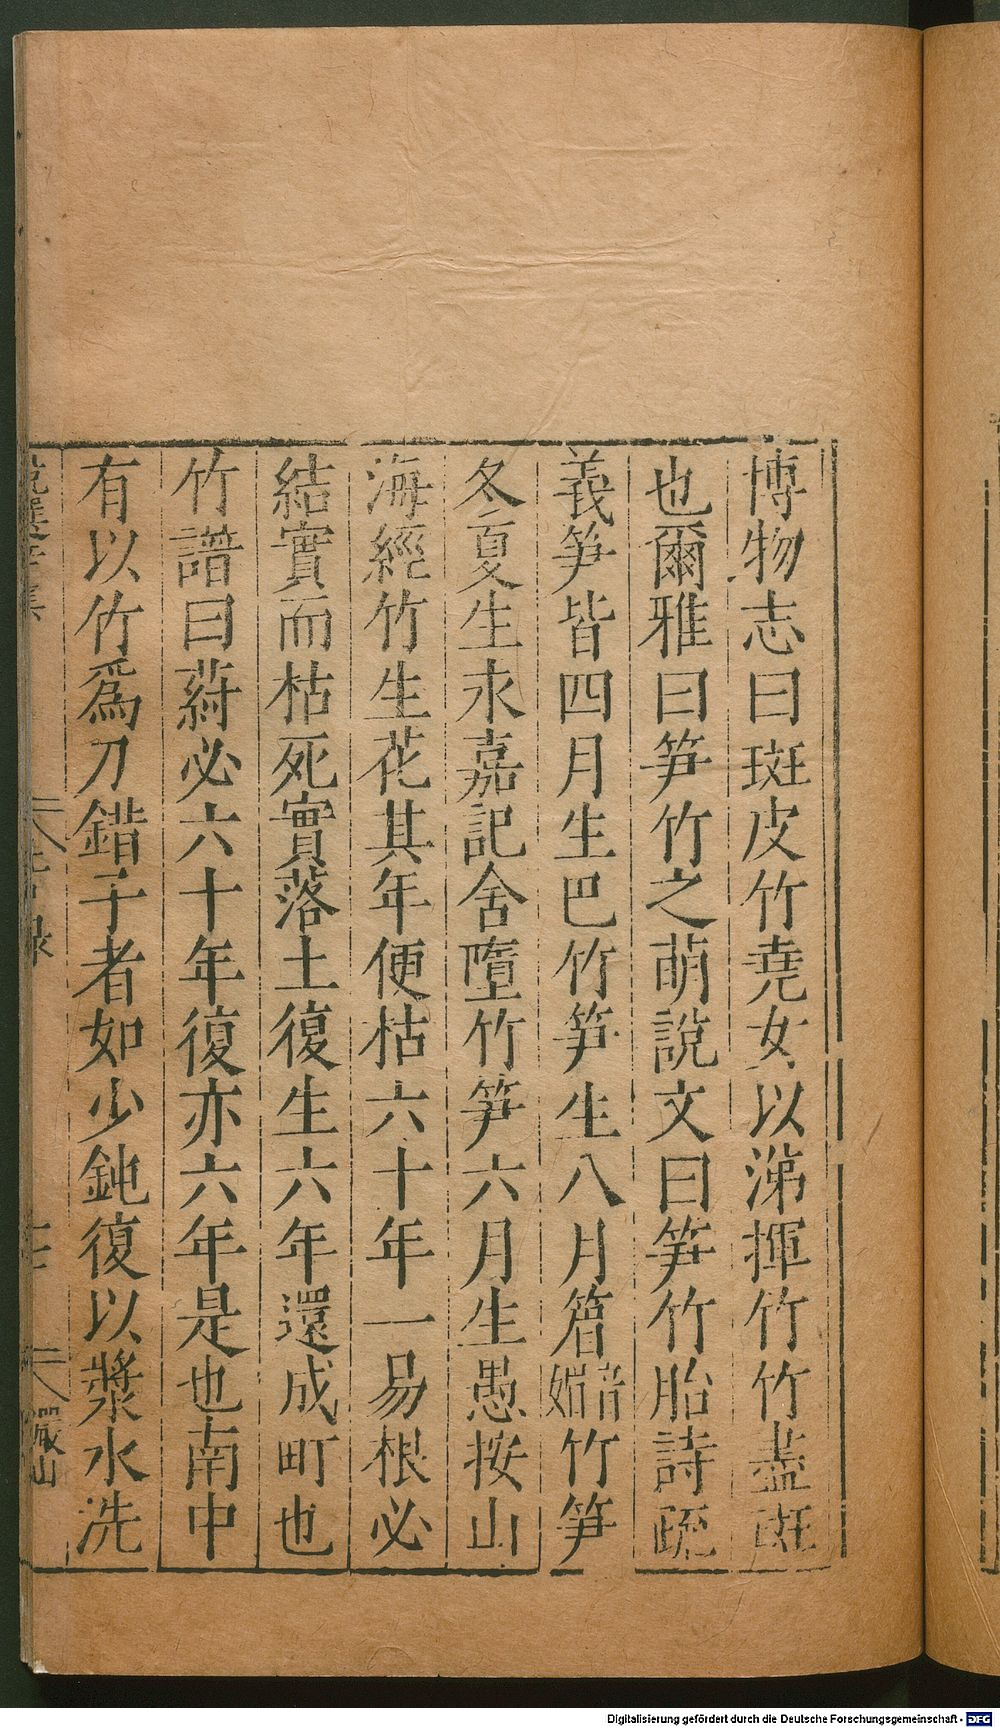 博物志曰斑皮竹堯女以涕揮竹竹盡斑
也爾雅曰笋竹之萌說文曰笋竹胎詩疏
義笋皆四月生巴竹笋生八月䈞音媚竹笋
冬夏生永嘉記含墮竹笋六月生愚按山
海經竹生花其年便枯六十年一易根必
結實而枯死實落土復生六年還成町也
竹譜曰葤必六十年復亦六年是也南中
有以竹爲刀錯子者如少鈍復以漿水洗
嚴山
Digitalisierung gefördert durch die Deutsche Forschungsgemeinschaft - DFG